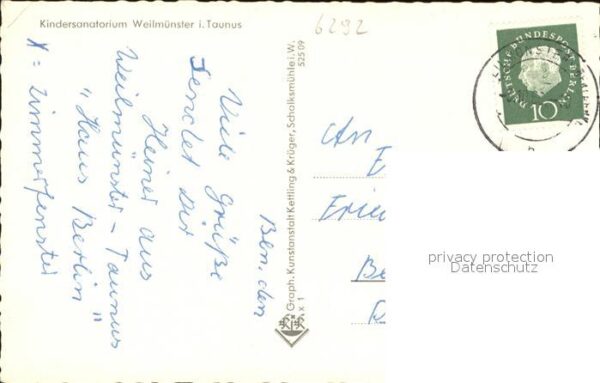 Kindersanatorium Weilmünster i. Taunus
6292
Ben. den
Viele Grüße
sendet dir
Heiner aus
Weilmünster - Taunus
"Haus Berlin"
X = Zimmerfenster
Graph. Kunstanstalt Kettling & Krüger, Schalksmühle i.W.
A x 1
525 09
An
E
Frie
Be
DEUTSCHE BUNDESPOST BERLIN
10
privacy protection
Datenschutz